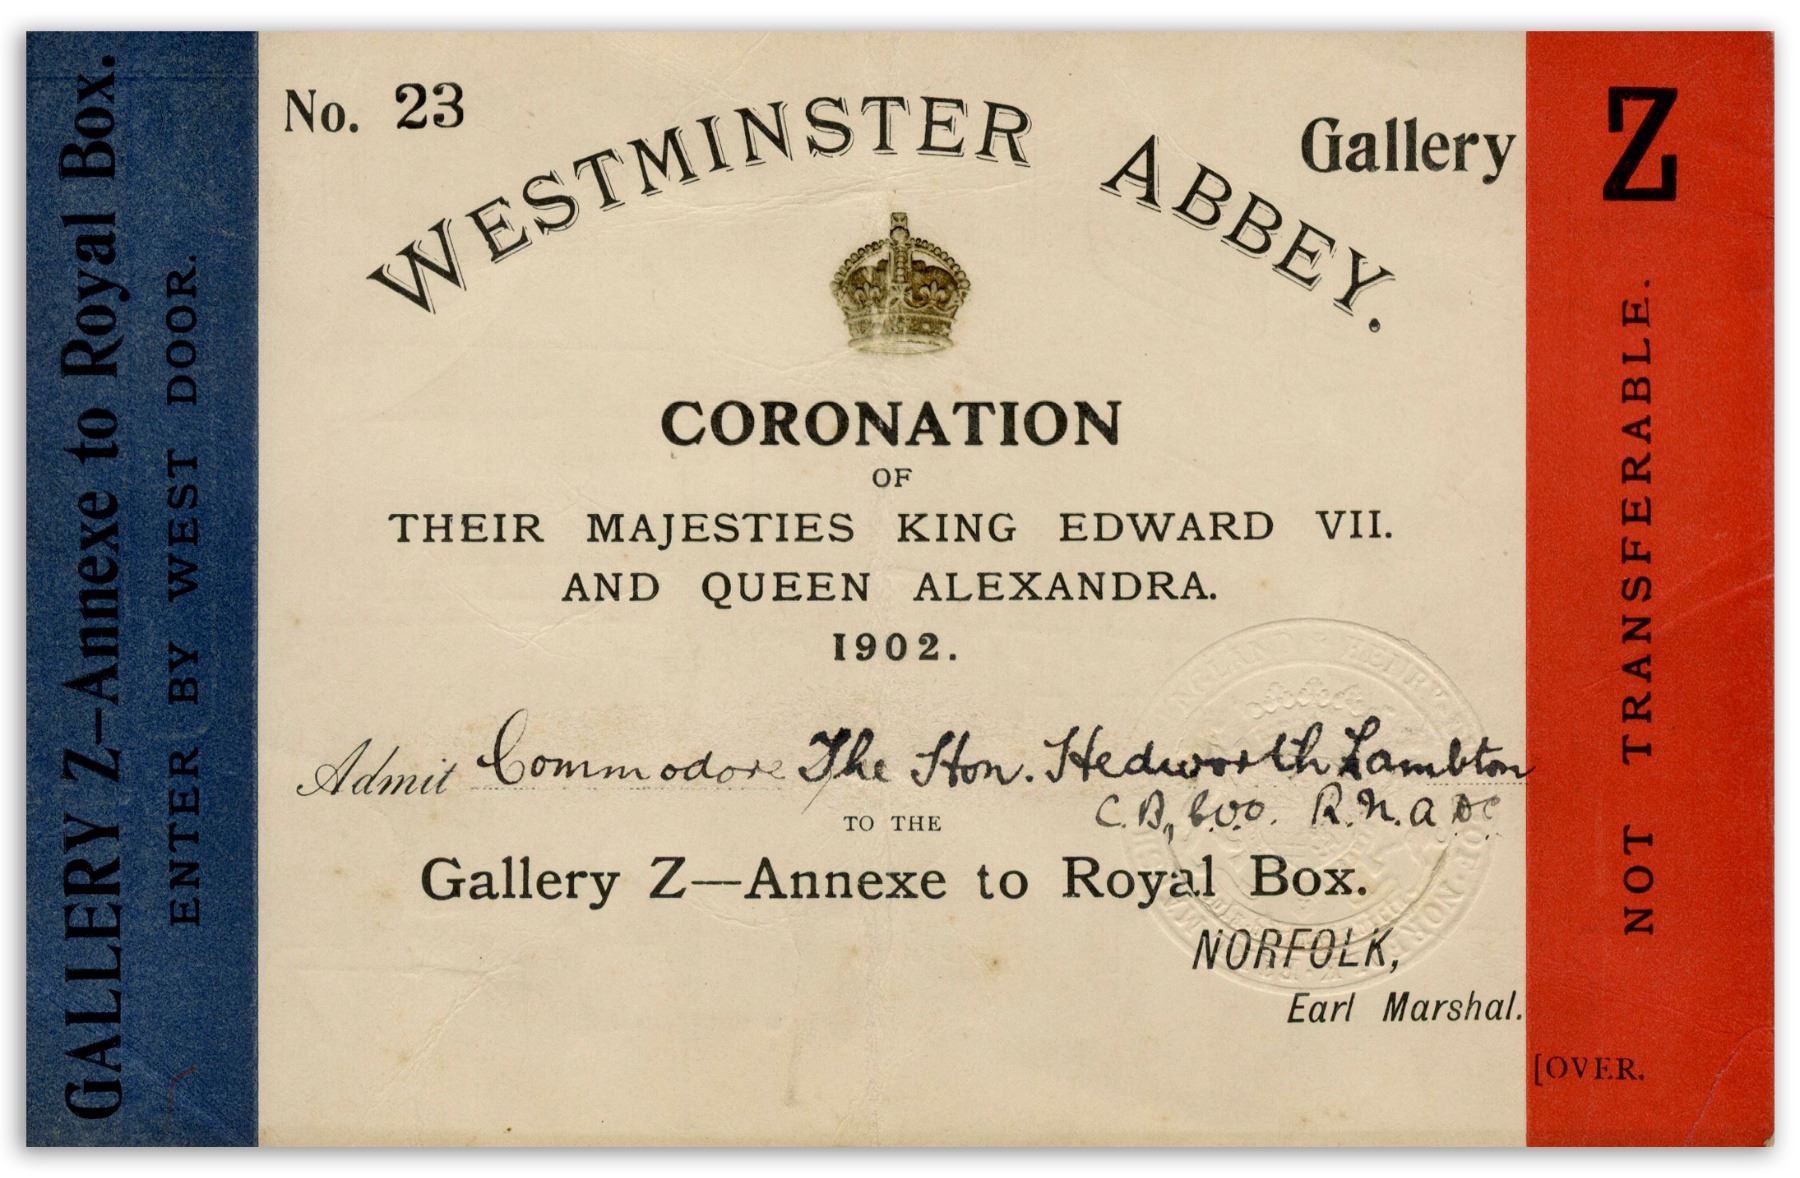 GALLERY Z–Annexe to Royal Box.
ENTER BY WEST DOOR.
No. 23
WESTMINSTER ABBEY.
Gallery Z
CORONATION
OF
THEIR MAJESTIES KING EDWARD VII.
AND QUEEN ALEXANDRA.
1902.
Admit Commodore The Hon. Hedworth Lambton
C.B, C.V.O. R.N. A DC
TO THE
Gallery Z—Annexe to Royal Box.
NORFOLK,
Earl Marshal.
[OVER.
NOT TRANSFERABLE.